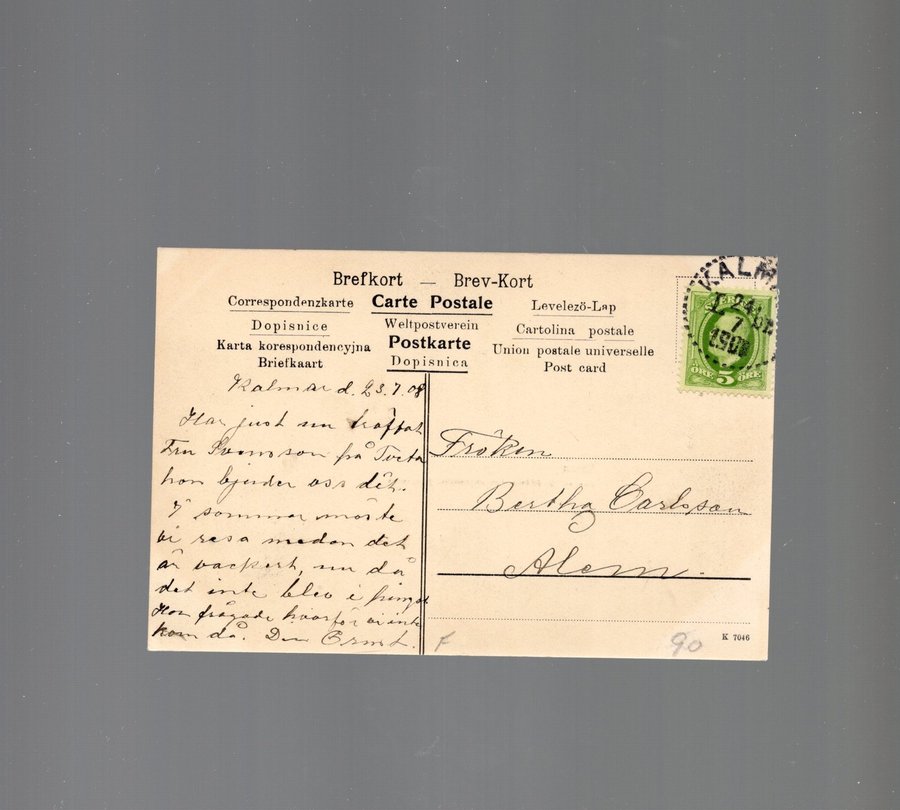 Brefkort — Brev-Kort
Correspondenzkarte Carte Postale Levelezö-Lap
Dopisnice Weltpostverein Cartolina postale
Karta korespondencyjna Postkarte Union postale universelle
Briefkaart Dopisnica Post card
KALM
24
7
190
ÖRE 5 ÖRE
Kalmar d. 23.7.08
Har just nu träffat
Fru Svensson på Tveta
hon bjuder oss dit.
I sommar måste
vi resa medan det
är vackert, nu då
det inte blev i pingst
Hon frågade hvarför vi inte
kom då. Din
Fröken
Bertha Carlsson
Alem.
F
90
K 7046